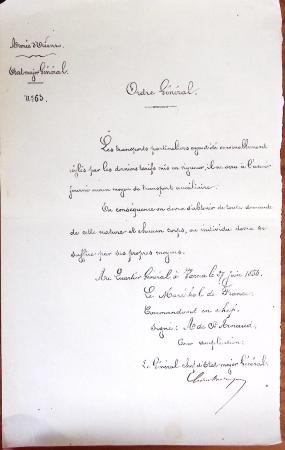 Armée d'Orient.
Etat-major Général.
N° 65.
Ordre Général.
Les transports particuliers ayant été
réglés par les derniers tarifs mis en vigueur, il ne sera à l'avenir
fourni aucun moyen de transport auxiliaire.
En conséquence on devra s'abstenir de toute demande
de cette nature et chaque corps, ou individu devra se
suffire par ses propres moyens.
Au Quartier Général, à Varna le 27 juin
Le Maréchal de France,
Commandant en chef,
Signé: A. de St Arnaud,
Pour ampliation:
Le Général chef d'Etat-major Général,